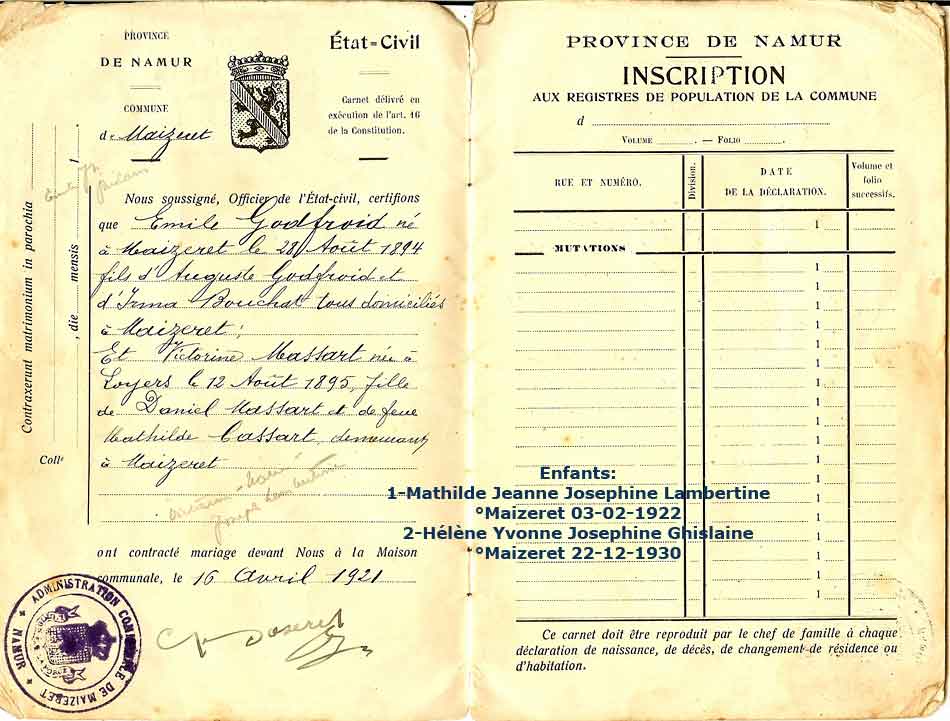 PROVINCE
DE NAMUR
COMMUNE
de Maizeret
État=Civil
Carnet délivré en
exécution de l'art. 16
de la Constitution.
Contraxerunt matrimonium in parochia
, die mensis 1
Coll
Nous soussigné, Officier de l'État-civil, certifions
que Emile Godfroid né
à Maizeret le 28 Août 1894
fils d'Auguste Godfroid et
d'Irma Bouchat tous domiciliés
à Maizeret;
Et Victorine Massart née à
Loyers le 12 Août 1895, fille
de Daniel Massart et de feue
Mathilde Cassart, demeurant
à Maizeret
Joseph Lambertine
ont contracté mariage devant Nous à la Maison
communale, le 16 Avril 1921
ADMINISTRATION COMMUNALE DE MAIZERET
NAMUR
PROVINCE DE NAMUR
INSCRIPTION
AUX REGISTRES DE POPULATION DE LA COMMUNE
d
VOLUME . — FOLIO .
RUE ET NUMÉRO. Division. DATE DE LA DÉCLARATION. Volume et folio successifs.
1
MUTATIONS
1
1
1
1
1
1
1
1
1
1
1
1
1
1
1
1
1
1
Enfants:
1-Mathilde Jeanne Josephine Lambertine
°Maizeret 03-02-1922
2-Hélène Yvonne Josephine Ghislaine
°Maizeret 22-12-1930
Ce carnet doit être reproduit par le chef de famille à chaque
déclaration de naissance, de décès, de changement de résidence ou
d'habitation.